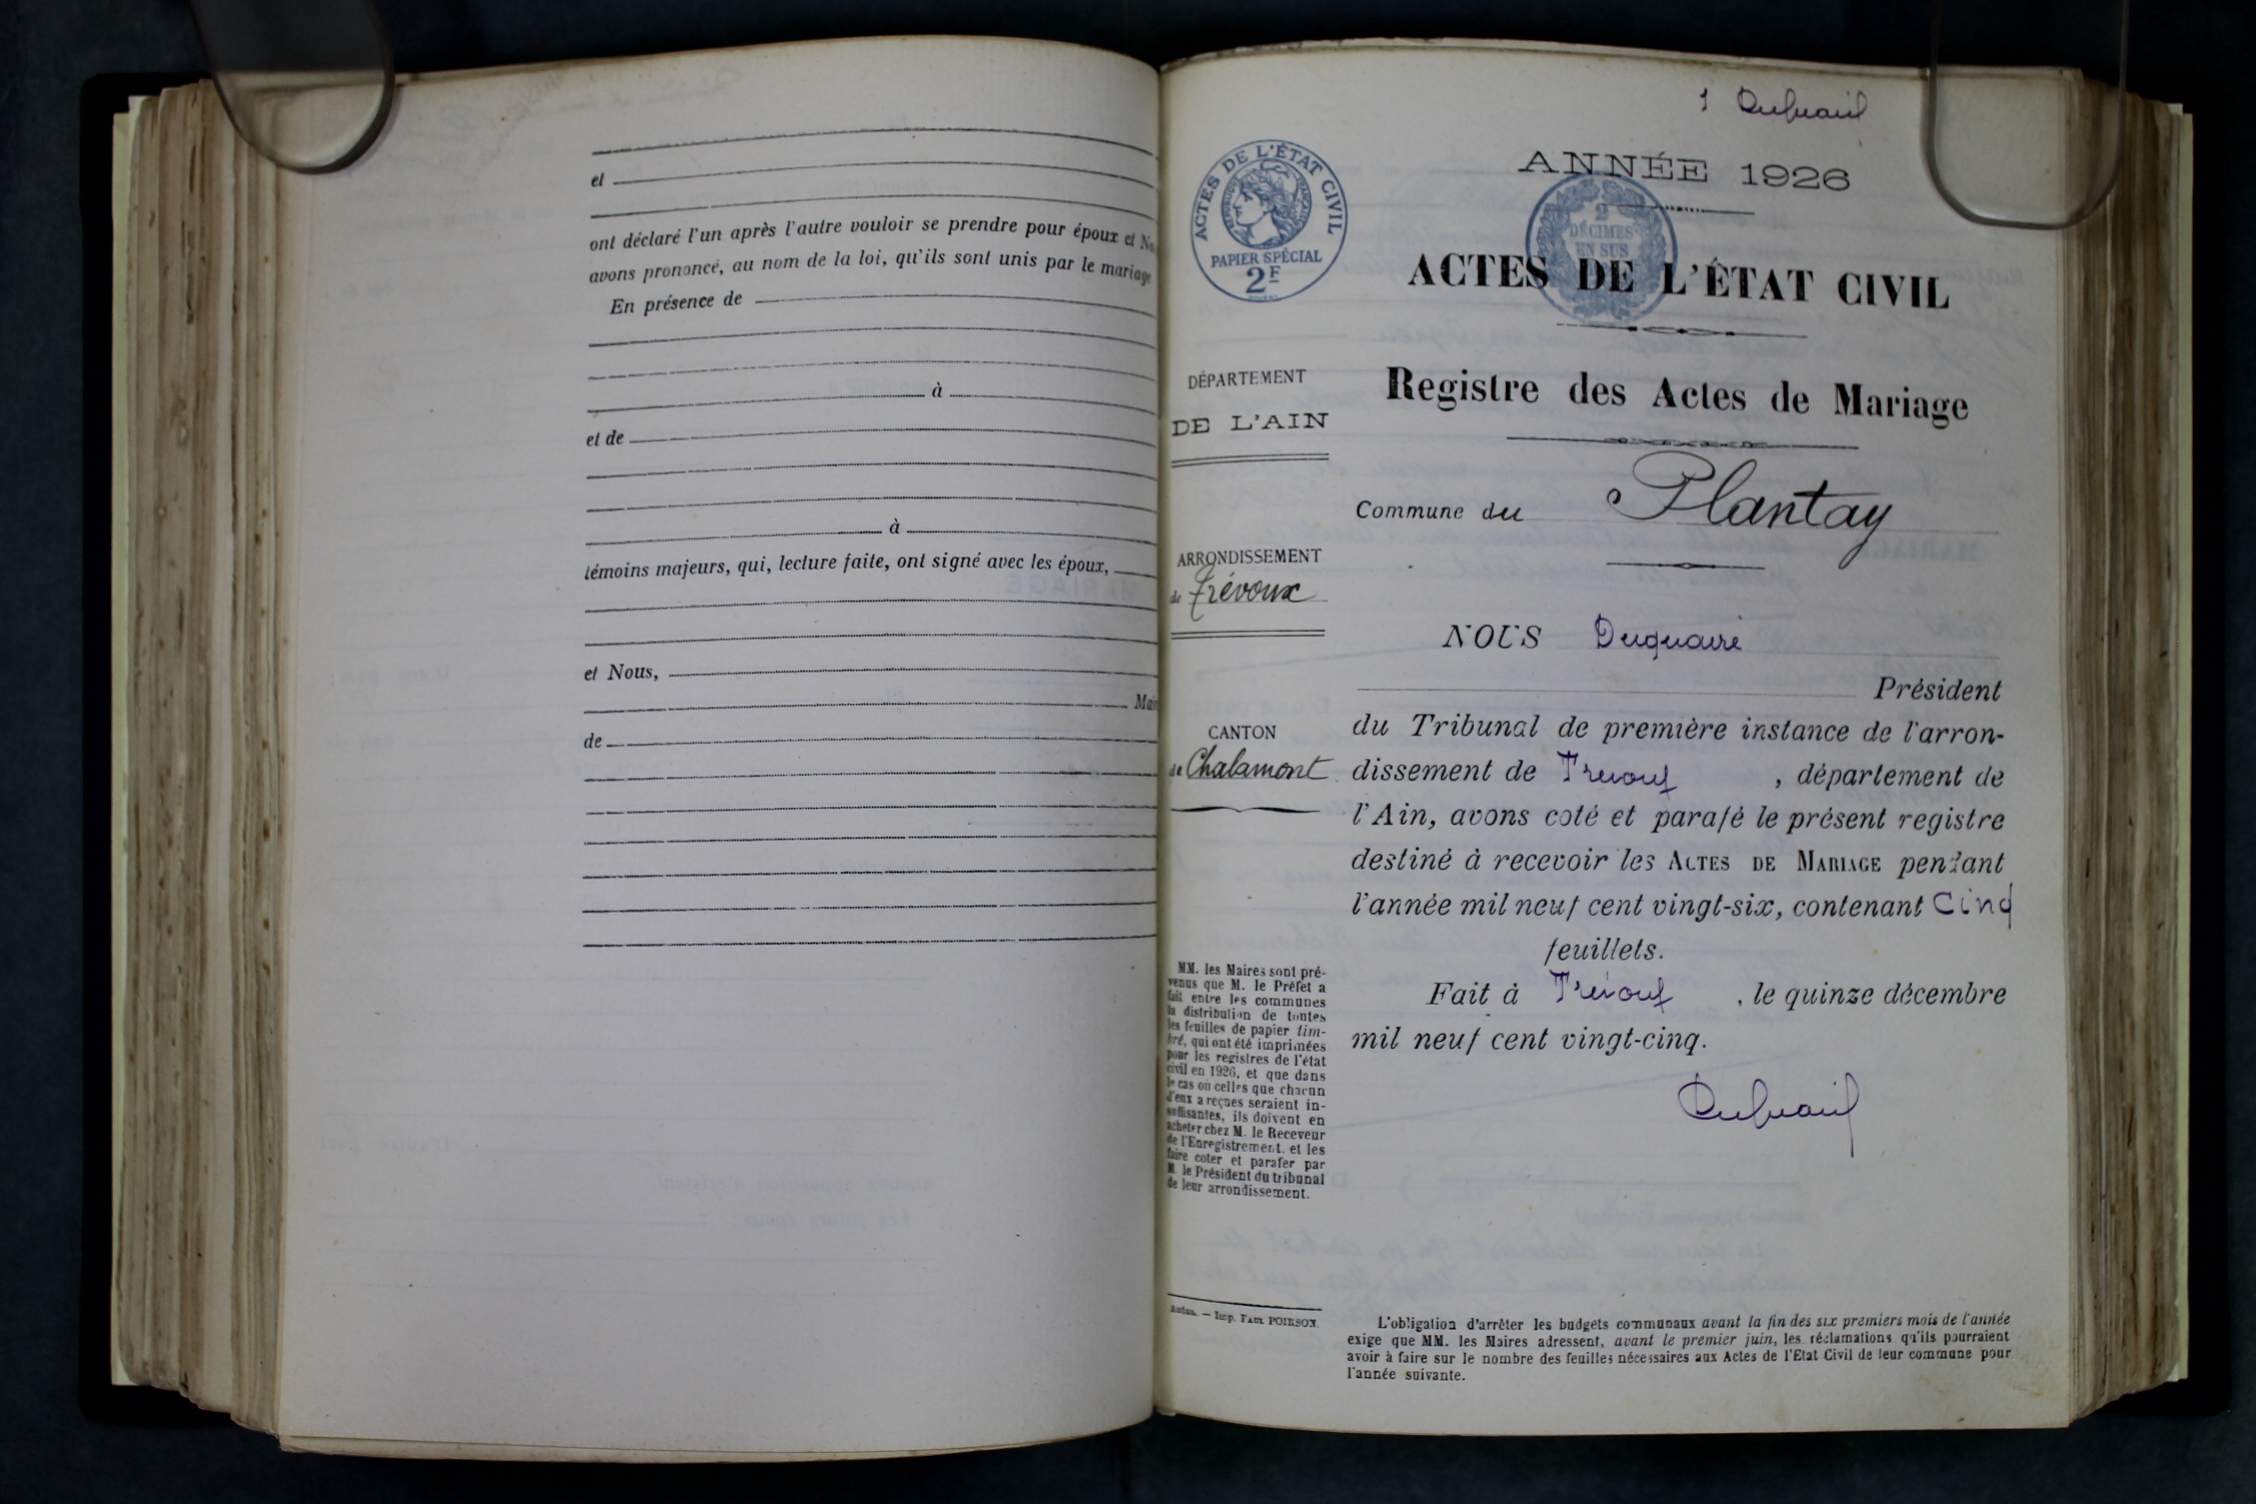 et
ont déclaré l'un après l'autre vouloir se prendre pour époux et
avons prononcé, au nom de la loi, qu'ils sont unis par le mariage
En présence de
à
et de
à
témoins majeurs, qui, lecture faite, ont signé avec les époux,
et Nous,
de
1
ANNÉE 1926
ACTES DE L'ÉTAT CIVIL
PAPIER SPÉCIAL
2F
2
DÉCIMES
EN SUS
ACTES DE L'ÉTAT CIVIL
Registre des Actes de Mariage
DÉPARTEMENT
DE L'AIN
ARRONDISSEMENT
de Trévoux
CANTON
de Chalamont
MM. les Maires sont pré-
venus que M. le Préfet a
fait entre les communes
la distribution de toutes
les feuilles de papier tim-
bré, qui ont été imprimées
pour les registres de l'état
civil en 1926, et que dans
le cas où celles que chacun
d'eux a reçues seraient in-
suffisantes, ils doivent en
acheter chez M. le Receveur
de l'Enregistrement et les
faire coter et parafer par
M. le Président du tribunal
de leur arrondissement.
Autun. — Imp. POIRSON.
Commune du Plantay
NOUS Duquaire
Président
du Tribunal de première instance de l'arron-
dissement de Trévoux, département de
l'Ain, avons coté et parafé le présent registre
destiné à recevoir les ACTES DE MARIAGE pendant
l'année mil neuf cent vingt-six, contenant Cinq
feuillets.
Fait à Trévoux, le quinze décembre
mil neuf cent vingt-cinq.
L'obligation d'arrêter les budgets communaux avant la fin des six premiers mois de l'année
exige que MM. les Maires adressent, avant le premier juin, les réclamations qu'ils pourraient
avoir à faire sur le nombre des feuilles nécessaires aux Actes de l'Etat Civil de leur commune pour
l'année suivante.